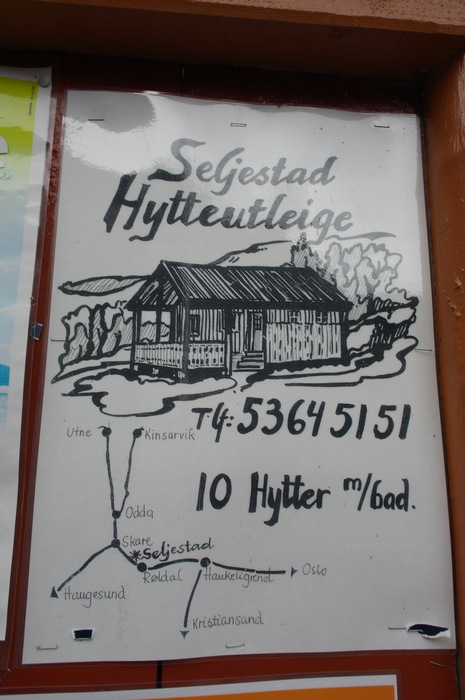 Seljestad
Hytteutleige
Tlf: 53645151
10 Hytter m/bad.
Utne
Kinsarvik
Odda
Skare
Seljestad
Røldal
Haukeligrend
Oslo
Haugesund
Kristiansand